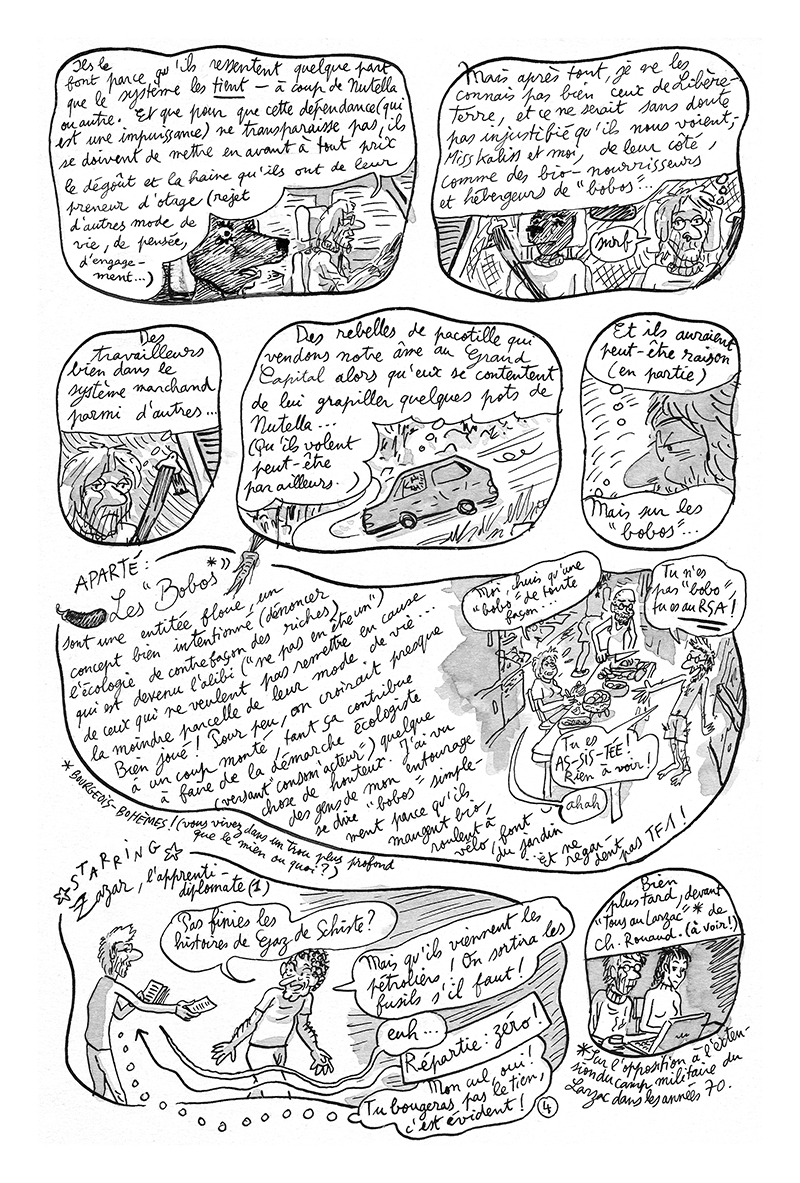 Ils le
font parce qu'ils ressentent quelque part
que le système les tient — à coup de Nutella
ou autre. Et que pour que cette dépendance (qui
est une impuissance) ne transparaisse pas, ils
se doivent de mettre en avant à tout prix
le dégoût et la haine qu'ils ont de leur
preneur d'otage (rejet
d'autres mode de
vie, de pensée,
d'engage-
ment...)
Mais après tout, je ne les
connais pas bien ceux de Libère-
Terre, et ce ne serait sans doute
pas injustifié qu'ils nous voient,
Miss Kaliss et moi, de leur côté,
comme des bio-nourrisseurs
et hébergeurs de "bobos"...
Des
travailleurs
bien dans le
système marchand
parmi d'autres...
Des rebelles de pacotille qui
vendons notre âme au Grand
Capital alors qu'eux se contentent
de lui grapiller quelques pots de
Nutella...
(Qu'ils volent
peut-être
par ailleurs.
Et ils auraient
peut-être raison
(en partie)
Mais sur les
"bobos"...
APARTÉ:
Les "Bobos"*
sont une entitée floue, un
concept bien intentionné (dénoncer
l'écologie de contrefaçon des riches)
qui est devenu l'alibi ("ne pas en être un")
de ceux qui ne veulent pas remettre en cause
la moindre parcelle de leur mode de vie...
Bien joué! Pour peu, on croirait presque
à un coup monté, tant ça contribue
à faire de la démarche écologiste
(versant consom'acteur") quelque
chose de honteux. J'ai vu
des gens de mon entourage
se dire "bobos" simple-
ment parce qu'ils
mangent bio,
roulent à
vélo, font
du jardin
... et ne regar-
dent pas TF1!
Moi, chuis qu'une
"bobo" de toute
façon...
Tu n'es
pas "bobo",
tu es au RSA!
Tu es
AS-SIS-TÉE!
Rien à voir!
ahah
* BOURGEOIS-BOHÈMES! (vous vivez dans un trou plus profond
que le mien ou quoi?)
STARRING
Zazar, l'apprenti-
diplomate (1)
Pas finies les
histoires de Gaz de Schiste?
Mais qu'ils viennent les
pétroliers! On sortira les
fusils s'il faut!
euh...
Répartie: zéro!
Mon cul, oui!
Tu bougeras pas le tien,
c'est évident!
4
Bien
plus tard, devant
"Tous au Larzac"* de
Ch. Rouaud. (à voir!)
*Sur l'opposition à l'exten-
sion du camp militaire du
Larzac dans les années 70.